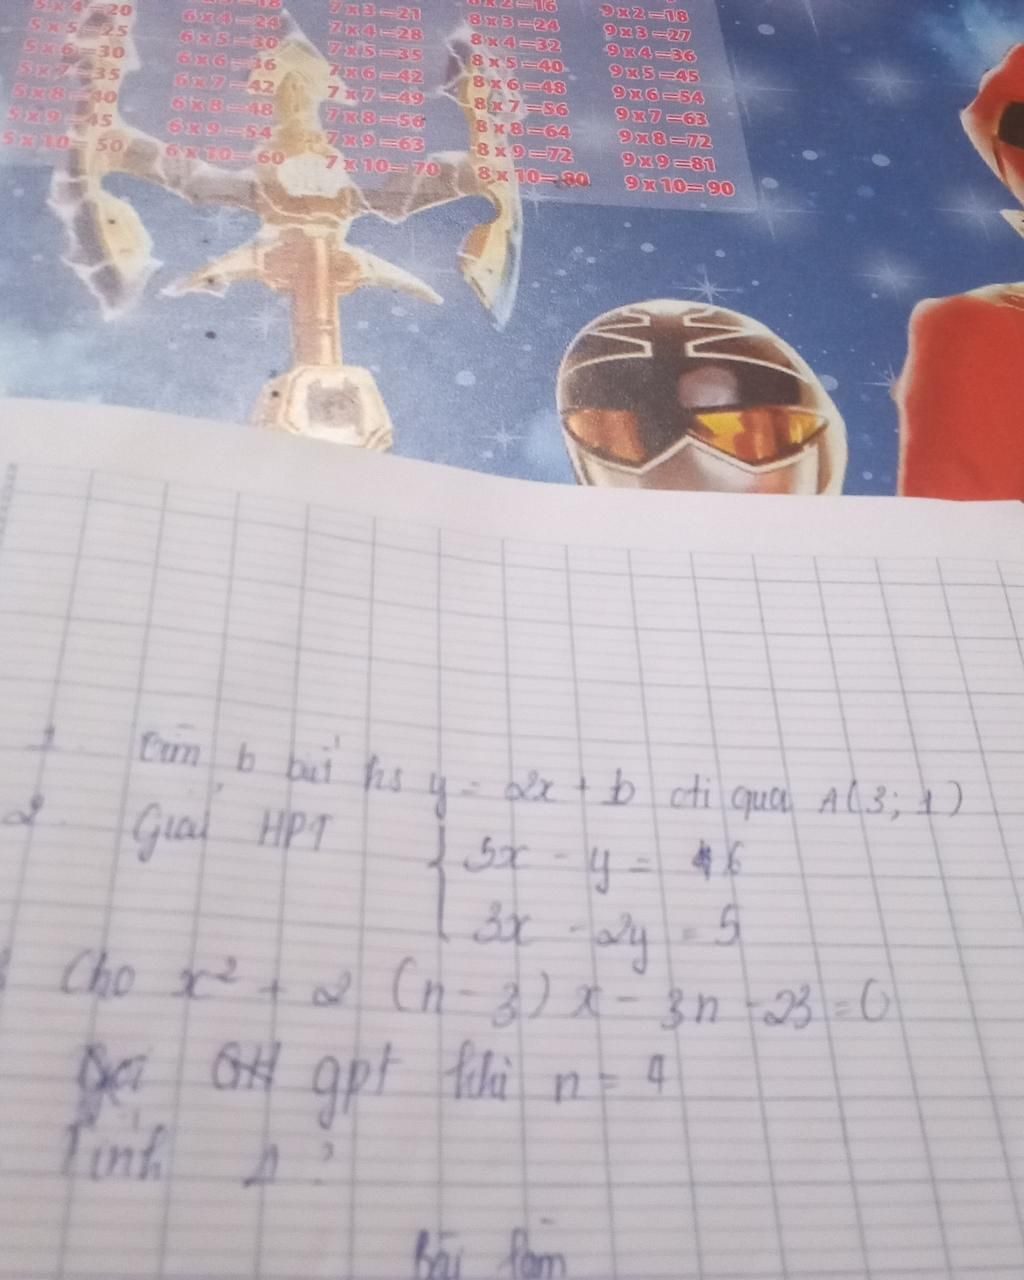 5 x 4=20
5 x 5=25
5 x 6=30
5 x 7=35
5 x 8=40
5 x 9=45
5 x 10=50
6 x 4=24
6 x 5=30
6 x 6=36
6 x 7=42
6 x 8=48
6 x 9=54
6 x 10=60
7 x 3=21
7 x 4=28
7 x 5=35
7 x 6=42
7 x 7=49
7 x 8=56
7 x 9=63
7 x 10=70
8 x 2=16
8 x 3=24
8 x 4=32
8 x 5=40
8 x 6=48
8 x 7=56
8 x 8=64
8 x 9=72
8 x 10=80
9 x 2=18
9 x 3=27
9 x 4=36
9 x 5=45
9 x 6=54
9 x 7=63
9 x 8=72
9 x 9=81
9 x 10=90
1 Tìm b hs y = 2x + b đi qua A(3; 1)
2 Giải HPT { 5x - y = 6
3x - 2y = 5
Cho x² + 2 (n-3) x - 3n - 23 = 0
gpt khi n = 4
Tính Δ ?
Bài làm